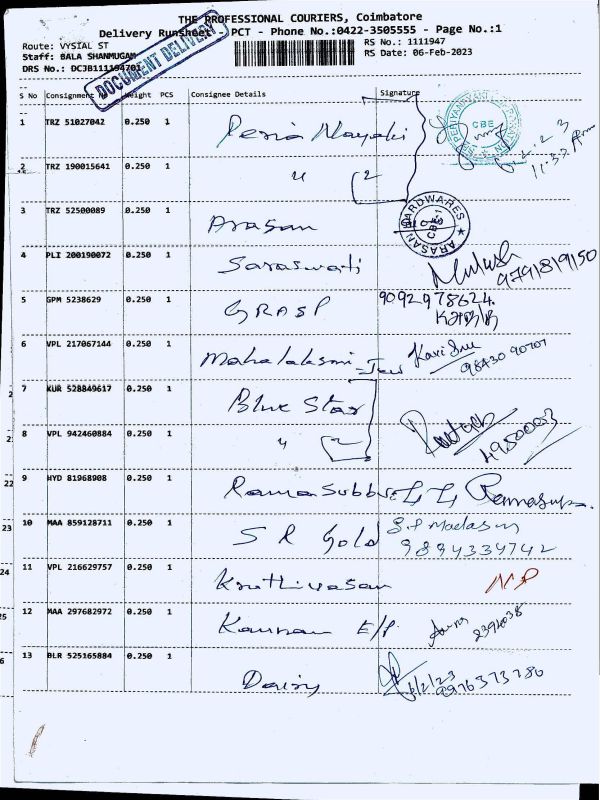 THE PROFESSIONAL COURIERS, Coimbatore
Delivery Runsheet - PCT - Phone No.:0422-3505555 - Page No.:1
Route: VYSIAL ST
Staff: BALA SHANMUGAM
DRS No.: DCJB111194701
RS No.: 1111947
RS Date: 06-Feb-2023
DOCUMENT DELIVERY
S No Consignment Weight PCS Consignee Details Signature
1 TRZ 51027042 0.250 1 Peria Nayaki
CBE
6.2.23
11.33 Am
2 TRZ 190015641 0.250 1 " 2
3 TRZ 52500089 0.250 1 Arasan
ARASAN HARDWARES
CBE-1
4 PLI 200190072 0.250 1 Saraswati Mukesh
9791819150
5 GPM 5238629 0.250 1 GRASP 9092978624
6 VPL 217067144 0.250 1 Mahalaksmi Jew
9843090707
7 KUR 528849617 0.250 1 Blue Star
8 VPL 942460884 0.250 1 " 2
49500003
9 HYD 81968908 0.250 1 Ramasubbu
10 MAA 859128711 0.250 1 S R Gold
9894339742
11 VPL 216629757 0.250 1 Kruthivasan
12 MAA 297682972 0.250 1 Kannan E/P
2392038
13 BLR 525165884 0.250 1 Daisy
6/2/23
9976373780